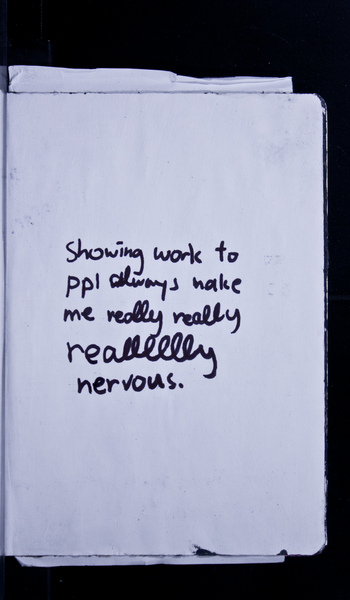 Showing work to
ppl always make
me really really
reallllllly
nervous.